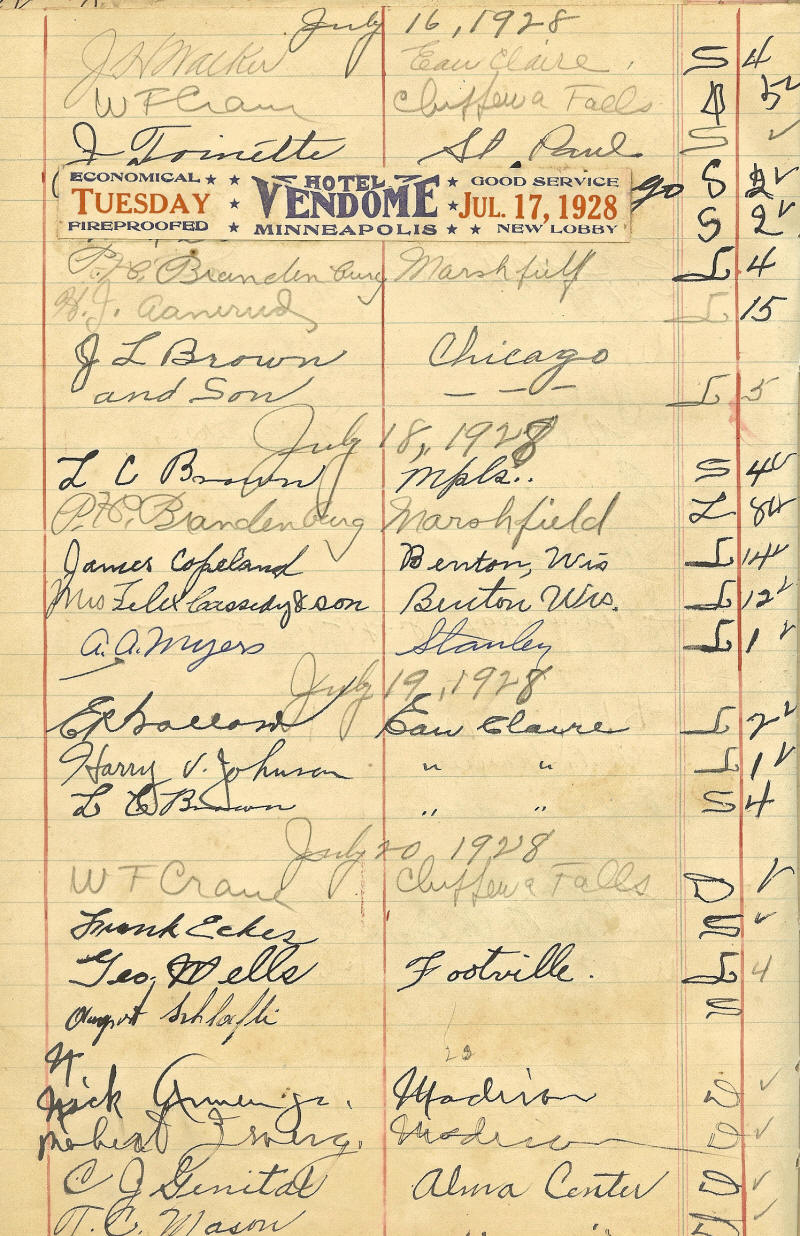 July 16, 1928
J H Walker Eau Claire. S 4
W F Crane Chippewa Falls 5
J Toinette St. Paul S
ECONOMICAL ★ ★ HOTEL ★ GOOD SERVICE
TUESDAY ★ VENDOME ★ JUL. 17, 1928 go S 2
FIREPROOFED ★ MINNEAPOLIS ★ ★ NEW LOBBY S 2
Brandenburg Marshfield L 4
H. J. Aanerud L 15
J L Brown Chicago
and Son — — — L 5
July 18, 1928
L C Brown Mpls.. S 4
Brandenburg Marshfield L 8
James Copeland Benton, Wis L 14
Mrs Felix Cassedy & son Benton Wis. L 12
A. A. Myers Stanley L 1
July 19, 1928
Eau Claire L 2
Harry V. Johnson " " L 1
L C Brown " " S 4
July 20 1928
W F Crane Chippewa Falls D
Frank Ecker
Geo Wells Footville. L 4
August Schlafli
23
Nick Madison D
Robert Madison D
C J Genital Alma Center D
T. C. Mason "